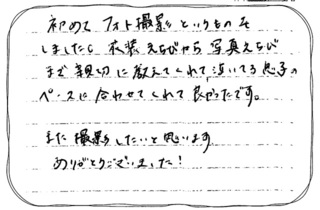 初めて フォト撮影 というものを
しましたら 衣装えらびから 写真えらび
まで 親切に 教えてくれて 泣いてる 息子の
ペースに 合わせてくれて 良かったです。
また 撮影したいと思います
ありがとうございました!